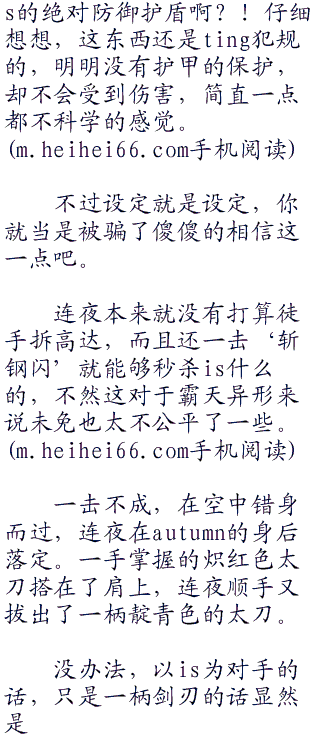 s的绝对防御护盾啊?！仔细
想想，这东西还是ting犯规
的，明明没有护甲的保护，
却不会受到伤害，简直一点
都不科学的感觉。
(m.heihei66.com手机阅读)
不过设定就是设定，你
就当是被骗了傻傻的相信这
一点吧。
连夜本来就没有打算徒
手拆高达，而且还一击‘斩
钢闪’就能够秒杀is什么
的，不然这对于霸天异形来
说未免也太不公平了一些。
(m.heihei66.com手机阅读)
一击不成，在空中错身
而过，连夜在autumn的身后
落定。一手掌握的炽红色太
刀搭在了肩上，连夜顺手又
拔出了一柄靛青色的太刀。
没办法，以is为对手的
话，只是一柄剑刃的话显然
是